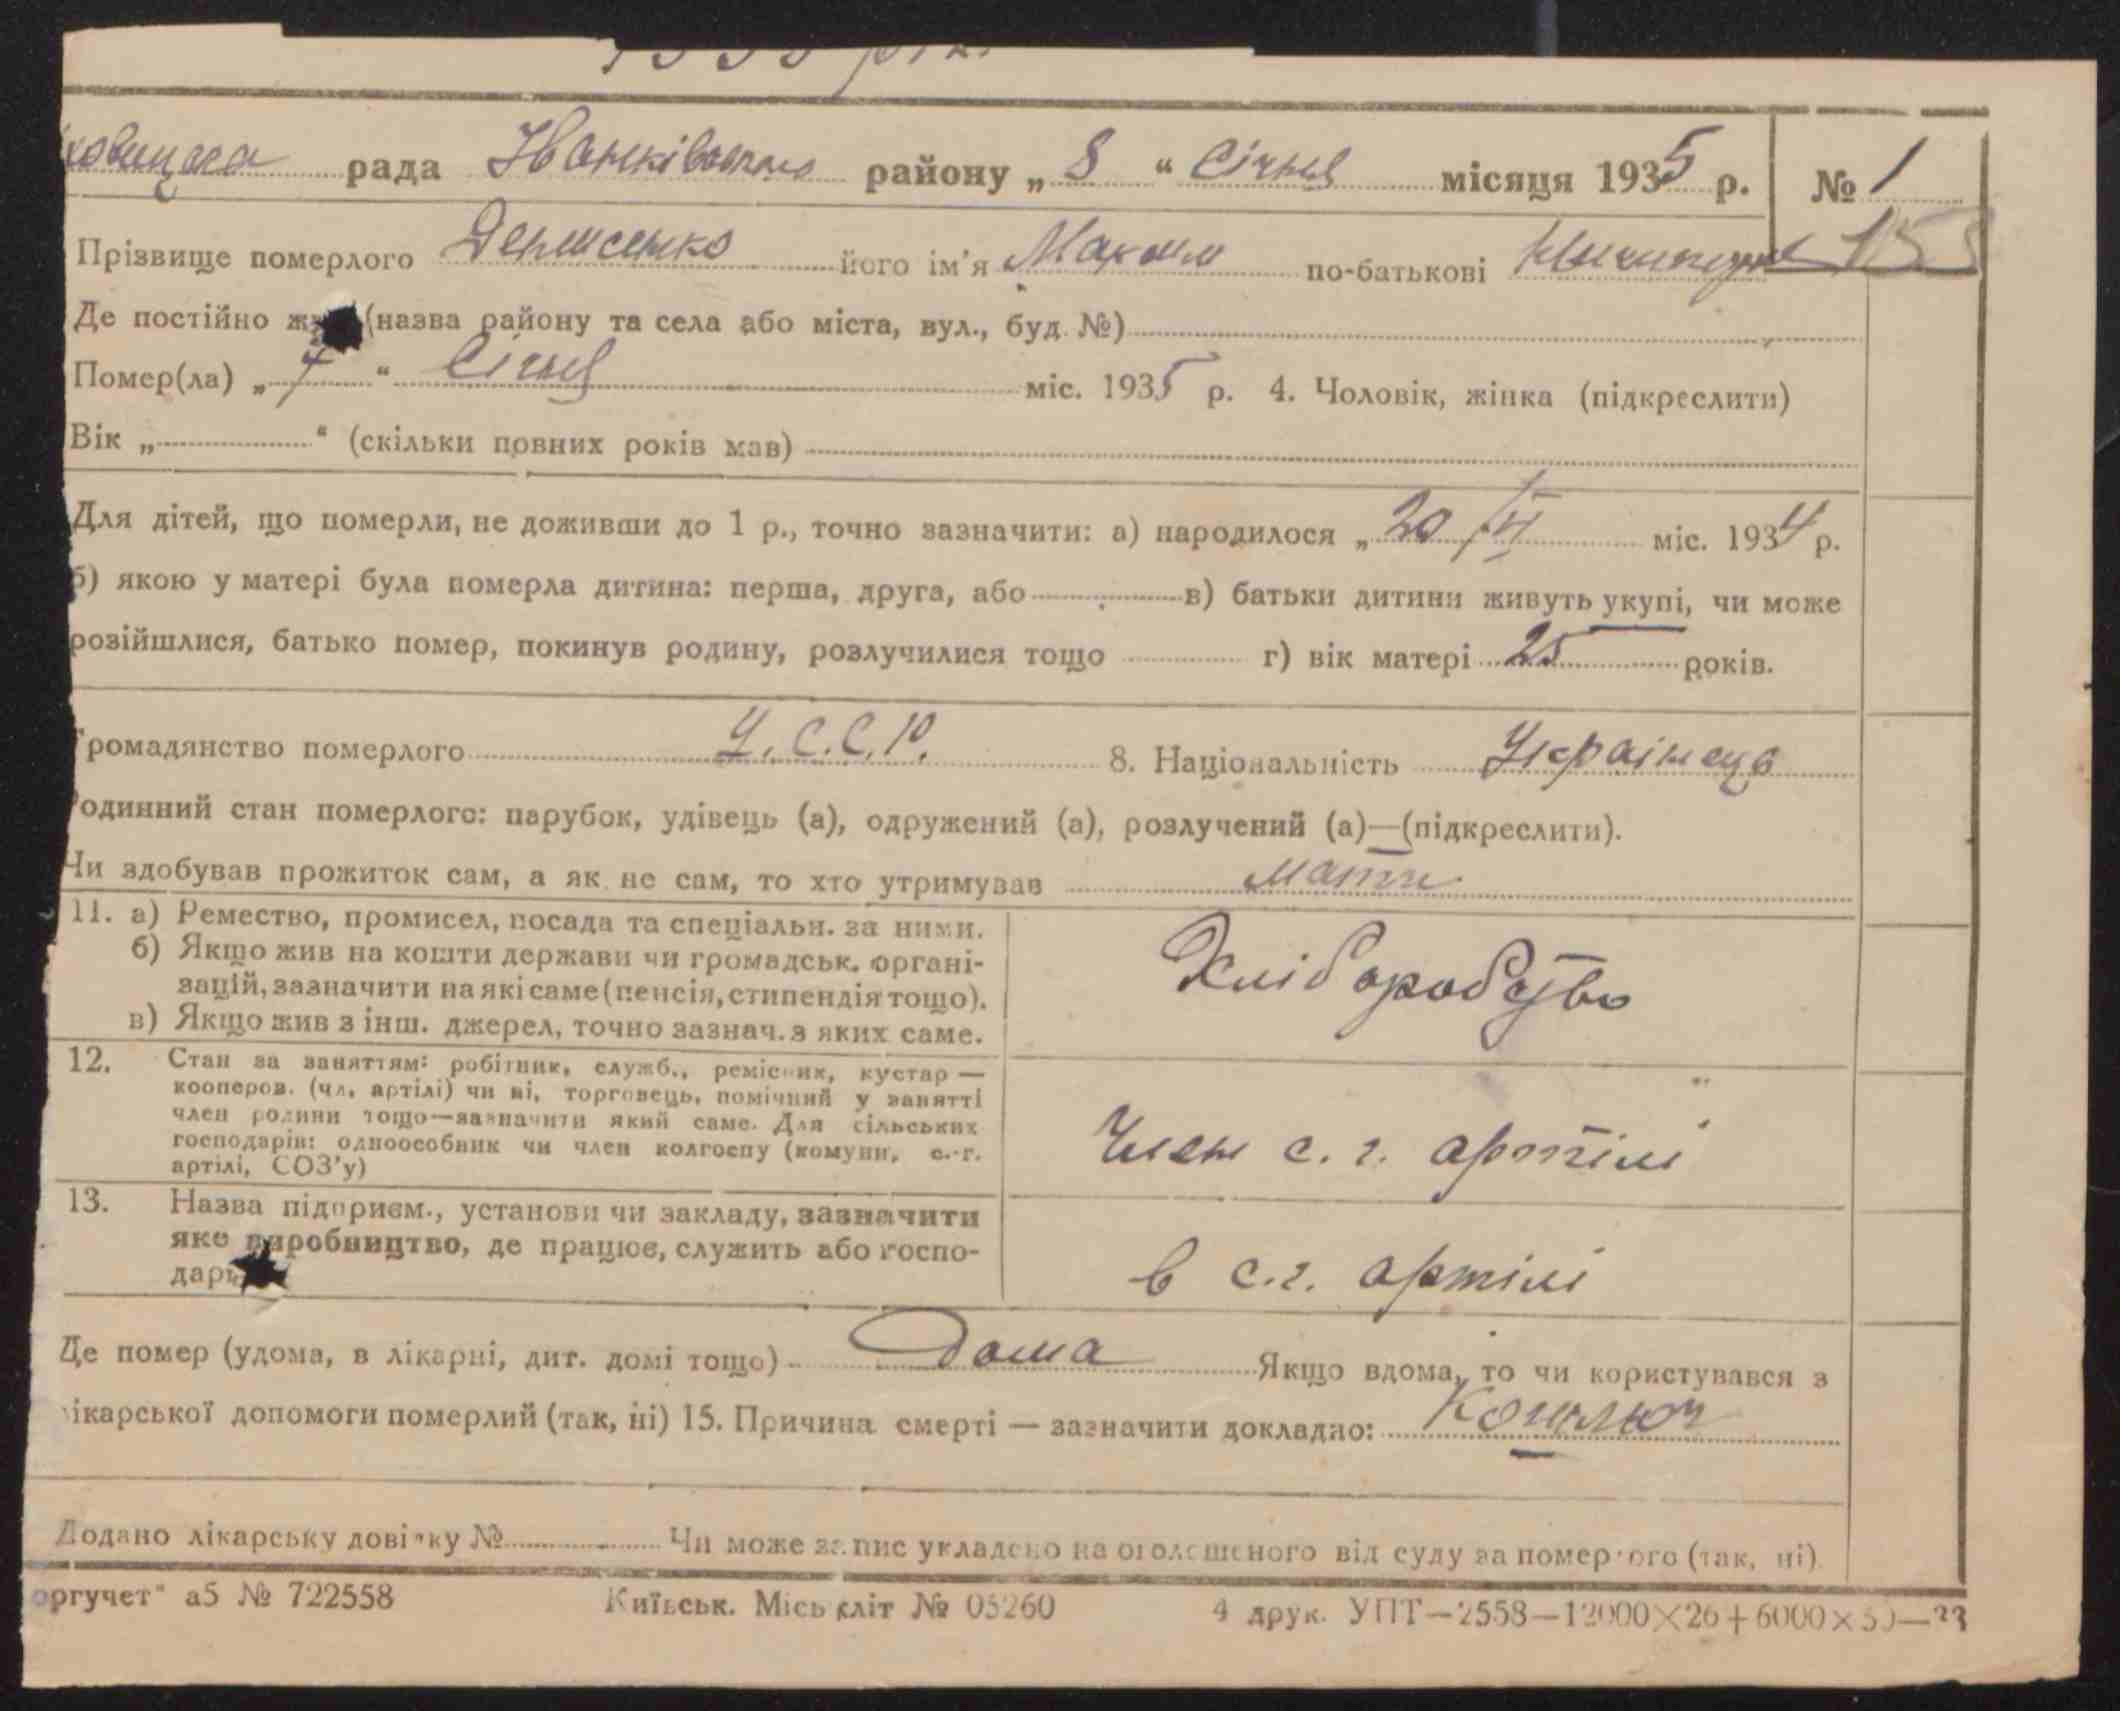 рада Іванківського району „ 8 “ Січня місяця 1935 р. № 1
Прізвище померлого Денисенко його ім'я Максим по-батькові 155
Де постійно (назва району та села або міста, вул., буд. №)
Помер(ла) „ 7 “ Січня міс. 1935 р. 4. Чоловік, жінка (підкреслити)
Вік „ “ (скільки повних років мав)
Для дітей, що померли, не доживши до 1 р., точно зазначити: а) народилося „ 20/VI міс. 1934 р.
б) якою у матері була померла дитина: перша, друга, або в) батьки дитини живуть укупі, чи може
розійшлися, батько помер, покинув родину, розлучилися тощо г) вік матері 25 років.
ромадянство померлого У.С.С.Р. 8. Національність Українець
одинний стан померлого: парубок, удівець (а), одружений (а), розлучений (а)—(підкреслити).
Чи здобував прожиток сам, а як не сам, то хто утримував мати
11. а) Ремество, промисел, посада та спеціальн. за ними.
б) Якщо жив на кошти держави чи громадськ. органі-
зацій, зазначити на які саме (пенсія, стипендія тощо).
в) Якщо жив з інш. джерел, точно зазнач. з яких саме.
Хліборобство
12. Стан за заняттям: робітник, служб., ремісник, кустар —
кооперов. (чл. артілі) чи ні, торговець, помічний у занятті
член родини тощо—зазначити який саме. Для сільських
господарів: одноособник чи член колгоспу (комуни, с.-г.
артілі, СОЗ'у)
Член с. г. артілі
13. Назва підприєм., установи чи закладу, зазначити
яке виробництво, де працює, служить або госпо-
дари
в с.г. артілі
Де помер (удома, в лікарні, дит. домі тощо) Дома Якщо вдома, то чи користувався з
ікарської допомоги померлий (так, ні) 15. Причина смерті — зазначити докладно: Кашлюк
Додано лікарську довідку № Чи може запис укладено на оголошеного від суду за померлого (так, ні).
оргучет" а5 № 722558 Київськ. Міськліт № 05260 4 друк. УПТ—2558—12000×26+6000×50—33